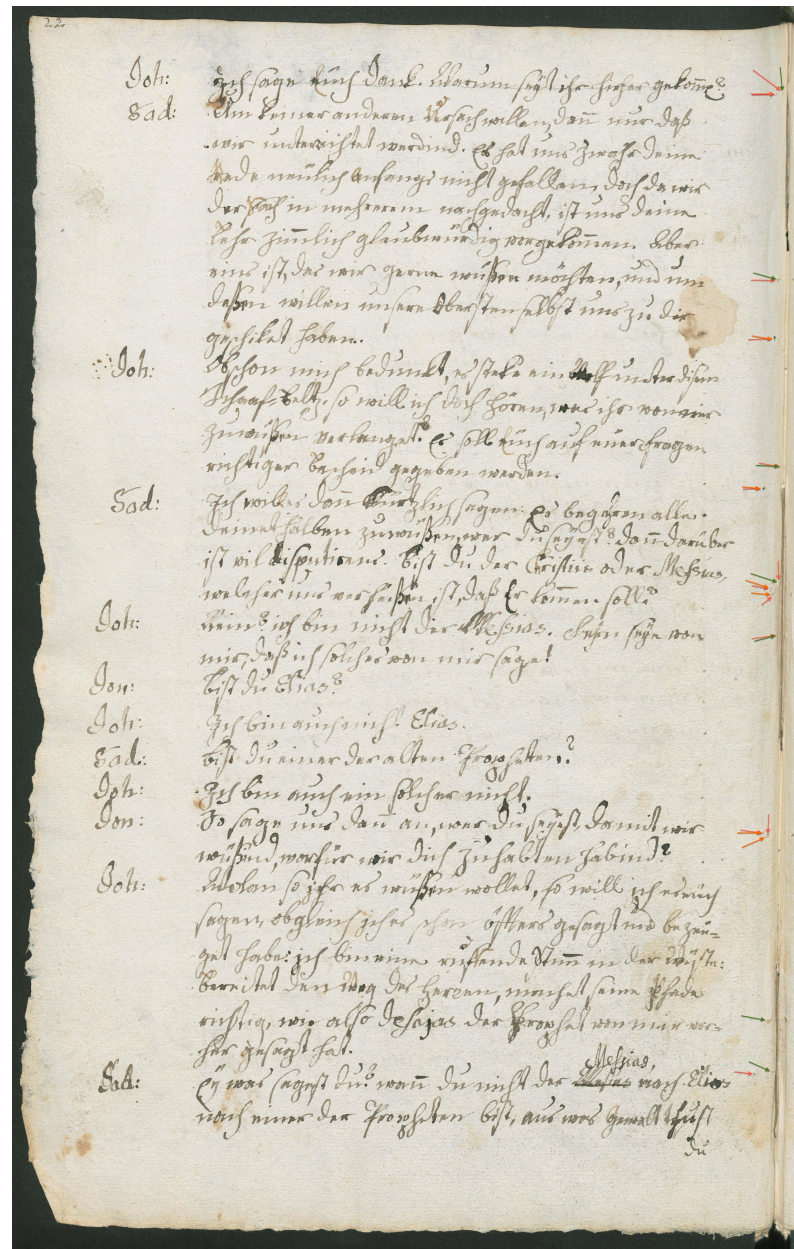 22.
Joh: Ich sage Euch danck. Warum seyt ihr hieher gekom̄e?
Sad: Um keiner anderen Ursach willen, dañ nur daß
wir unterrichtet werdind. Es hat uns zwahr deine
Rede neülich Anfangs nicht gefallen, doch da wir
der Sach in mehrerem nachgedacht, ist uns deine
Lehr zim̄lich glaubwürdig vorgekom̄en. Aber
eins ist, das wir gerne wüßen möchten, und um
deßen willen unsere Obersten selbst uns zu dir
geschiket haben.
Joh: Obschon mich bedunkt, es steke ein Wolff unter disem
Schaaf-beltz, so will ich doch hören, was ihr von mir
zuwüßen verlanget? Es soll Euch auf euer fragen
richtiger bescheid gegeben werden.
Sad: Ich will es dañ Kürtzlich sagen: Es begehren alle
deinethalben zuwüßen, wer du seyest? dañ darüber
ist vil disputierens. Bist du der Christus oder Messias,
welcher uns verheißen ist, daß Er kommen soll?
Joh: Nein? ich bin nicht der Messias. Feyn seye von
mir, daß ich solches von mir sage!
Jon: Bist du Elias?
Joh: Ich bin auch nicht Elias.
Sad: Bist du einer der alten Propheten?
Joh: Ich bin auch ein solcher nicht.
Jon: So sage uns dañ an, wer du seyest, damit wir
wüßend, worfür wir dich zuhalten habind?
Joh: Wolan so ihr es wüßen wollet, so will ich es eüch
sagen, obgleich ich es schon öffters gesagt und bezeu-
get habe: ich bin eine ruffende Stim̄ in der wüste:
bereitet den Weg des Herren, machet seine Pfade
richtig, wie also Jesajas der Prophet von mir vor-
her gesagt hat.
Messias,
Sad: Ey was sagest du? wañ du nicht der noch Elias
noch einer der Propheten bist, aus was Gewalt thust
du